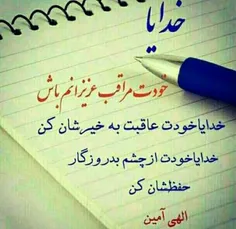 خدایا
خودت مراقب عزیزانم باش
خدایاخودت عاقبت به خیرشان کن
خدایاخودت ازچشم بدروزگار
حفظشان کن
الهی آمین